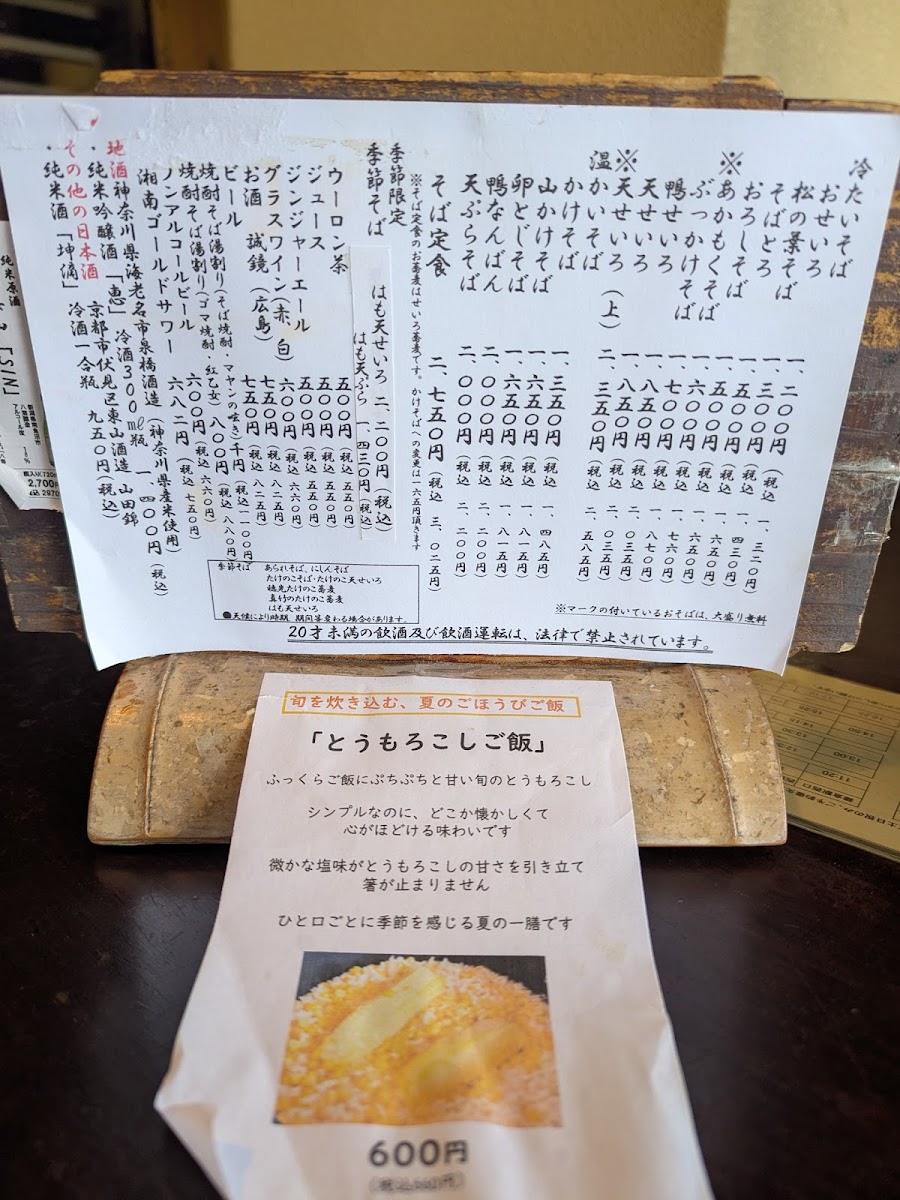 冷たいそば
おせいろ 一、二〇〇円(税込 一、三二〇円)
松の葉そば 一、三〇〇円(税込 一、四三〇円)
そばとろ 一、五〇〇円(税込 一、六五〇円)
おろしそば 一、五〇〇円(税込 一、六五〇円)
※あかもくそば 一、六〇〇円(税込 一、七六〇円)
ぶっかけそば 一、七〇〇円(税込 一、八七〇円)
鴨せいろ 一、八五〇円(税込 二、〇三五円)
天せいろ 一、八五〇円(税込 二、〇三五円)
※天せいろ(上) 二、三五〇円(税込 二、五八五円)
温かいそば
かけそば 一、三五〇円(税込 一、四八五円)
山かけそば 一、六五〇円(税込 一、八一五円)
卵とじそば 一、六五〇円(税込 一、八一五円)
鴨なんばん 二、〇〇〇円(税込 二、二〇〇円)
天ぷらそば 二、〇〇〇円(税込 二、二〇〇円)
そば定食 二、七五〇円(税込 三、〇二五円)
※そば定食のお蕎麦はせいろ蕎麦です。かけそばへの変更は一六五円頂きます
季節限定
季節そば
はも天せいろ 二、二〇〇円(税込)
はも天ぷら 一、四三〇円(税込)
ウーロン茶 五〇〇円(税込 五五〇円)
ジュース 五〇〇円(税込 五五〇円)
ジンジャーエール 五〇〇円(税込 五五〇円)
グラスワイン(赤、白) 六〇〇円(税込
お酒 誠鏡(広島) 七五〇円(税込 八二五円)
ビール 七五〇円(税込 八二五円)
焼酎そば湯割り(そば焼酎・マヤンの呟き)千円(税込 一、一〇〇円)
焼酎そば湯割り(ゴマ焼酎・紅乙女) 八〇〇円(税込 八八〇円)
ノンアルコールビール 六〇〇円(税込 六六〇円)
湘南ゴールドサワー 六八二円(税込 七五〇円)
地酒神奈川県海老名市泉橋酒造(神奈川県産米使用)
・純米吟醸酒「恵」 冷酒300㎖瓶 一、四〇〇円(税込)
その他の日本酒 京都市伏見区東山酒造 山田錦
・純米酒「坤滴」 冷酒一合瓶 九五〇円(税込)
季節そば あられそば、にしんそば
たけのこそば・たけのこ天せいろ
穂先たけのこ蕎麦
真竹のたけのこ蕎麦
はも天せいろ
●天候により時期、期間等変わる場合があります。
※マークの付いているおそばは、大盛り無料
20才未満の飲酒及び飲酒運転は、法律で禁止されています。
旬を炊き込む、夏のごほうびご飯
「とうもろこしご飯」
ふっくらご飯にぷちぷちと甘い旬のとうもろこし
シンプルなのに、どこか懐かしくて
心がほどける味わいです
微かな塩味がとうもろこしの甘さを引き立て
箸が止まりません
ひと口ごとに季節を感じる夏の一膳です
600円
(税込660円)
純米原酒
2,700円
11:20
13:00
13:30
14:15
14:50